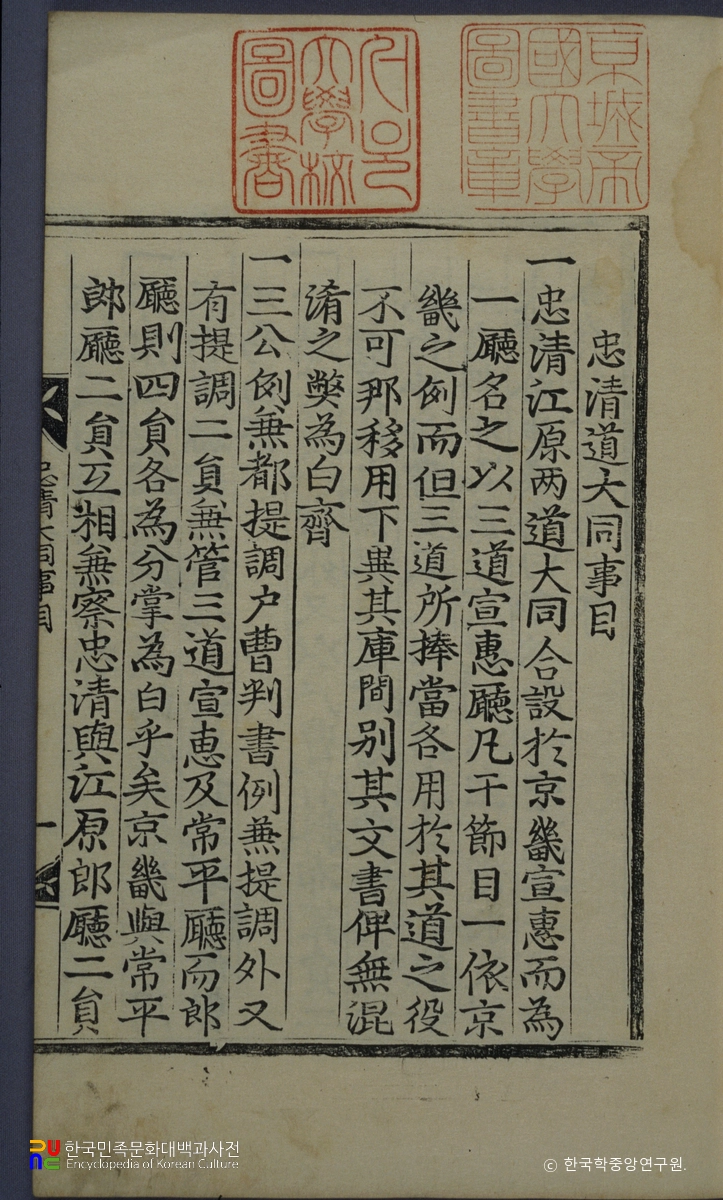 京城帝
國大學
圖書章
大學校
圖書
忠清道大同事目
一忠清江原两道大同合設扵京畿宣惠而為
一廳名之以三道宣惠廳凡干節目一依京
畿之例而但三道所捧當各用扵其道之役
不可那移用下異其庫間别其文書俾無混
淆之弊為白齊
一三公例兼都提調户曹判書例兼提調外又
有提調二負無管三道宣恵及常平廳而郎
廳則四負各為分掌為白乎矣京畿與常平
郎廳二負互相兼察忠清與江原郎廳二負
忠清大同事目
一
한국민족문화대백과사전
Encyclopedia of Korean Culture
ⓒ 한국학중앙연구원.